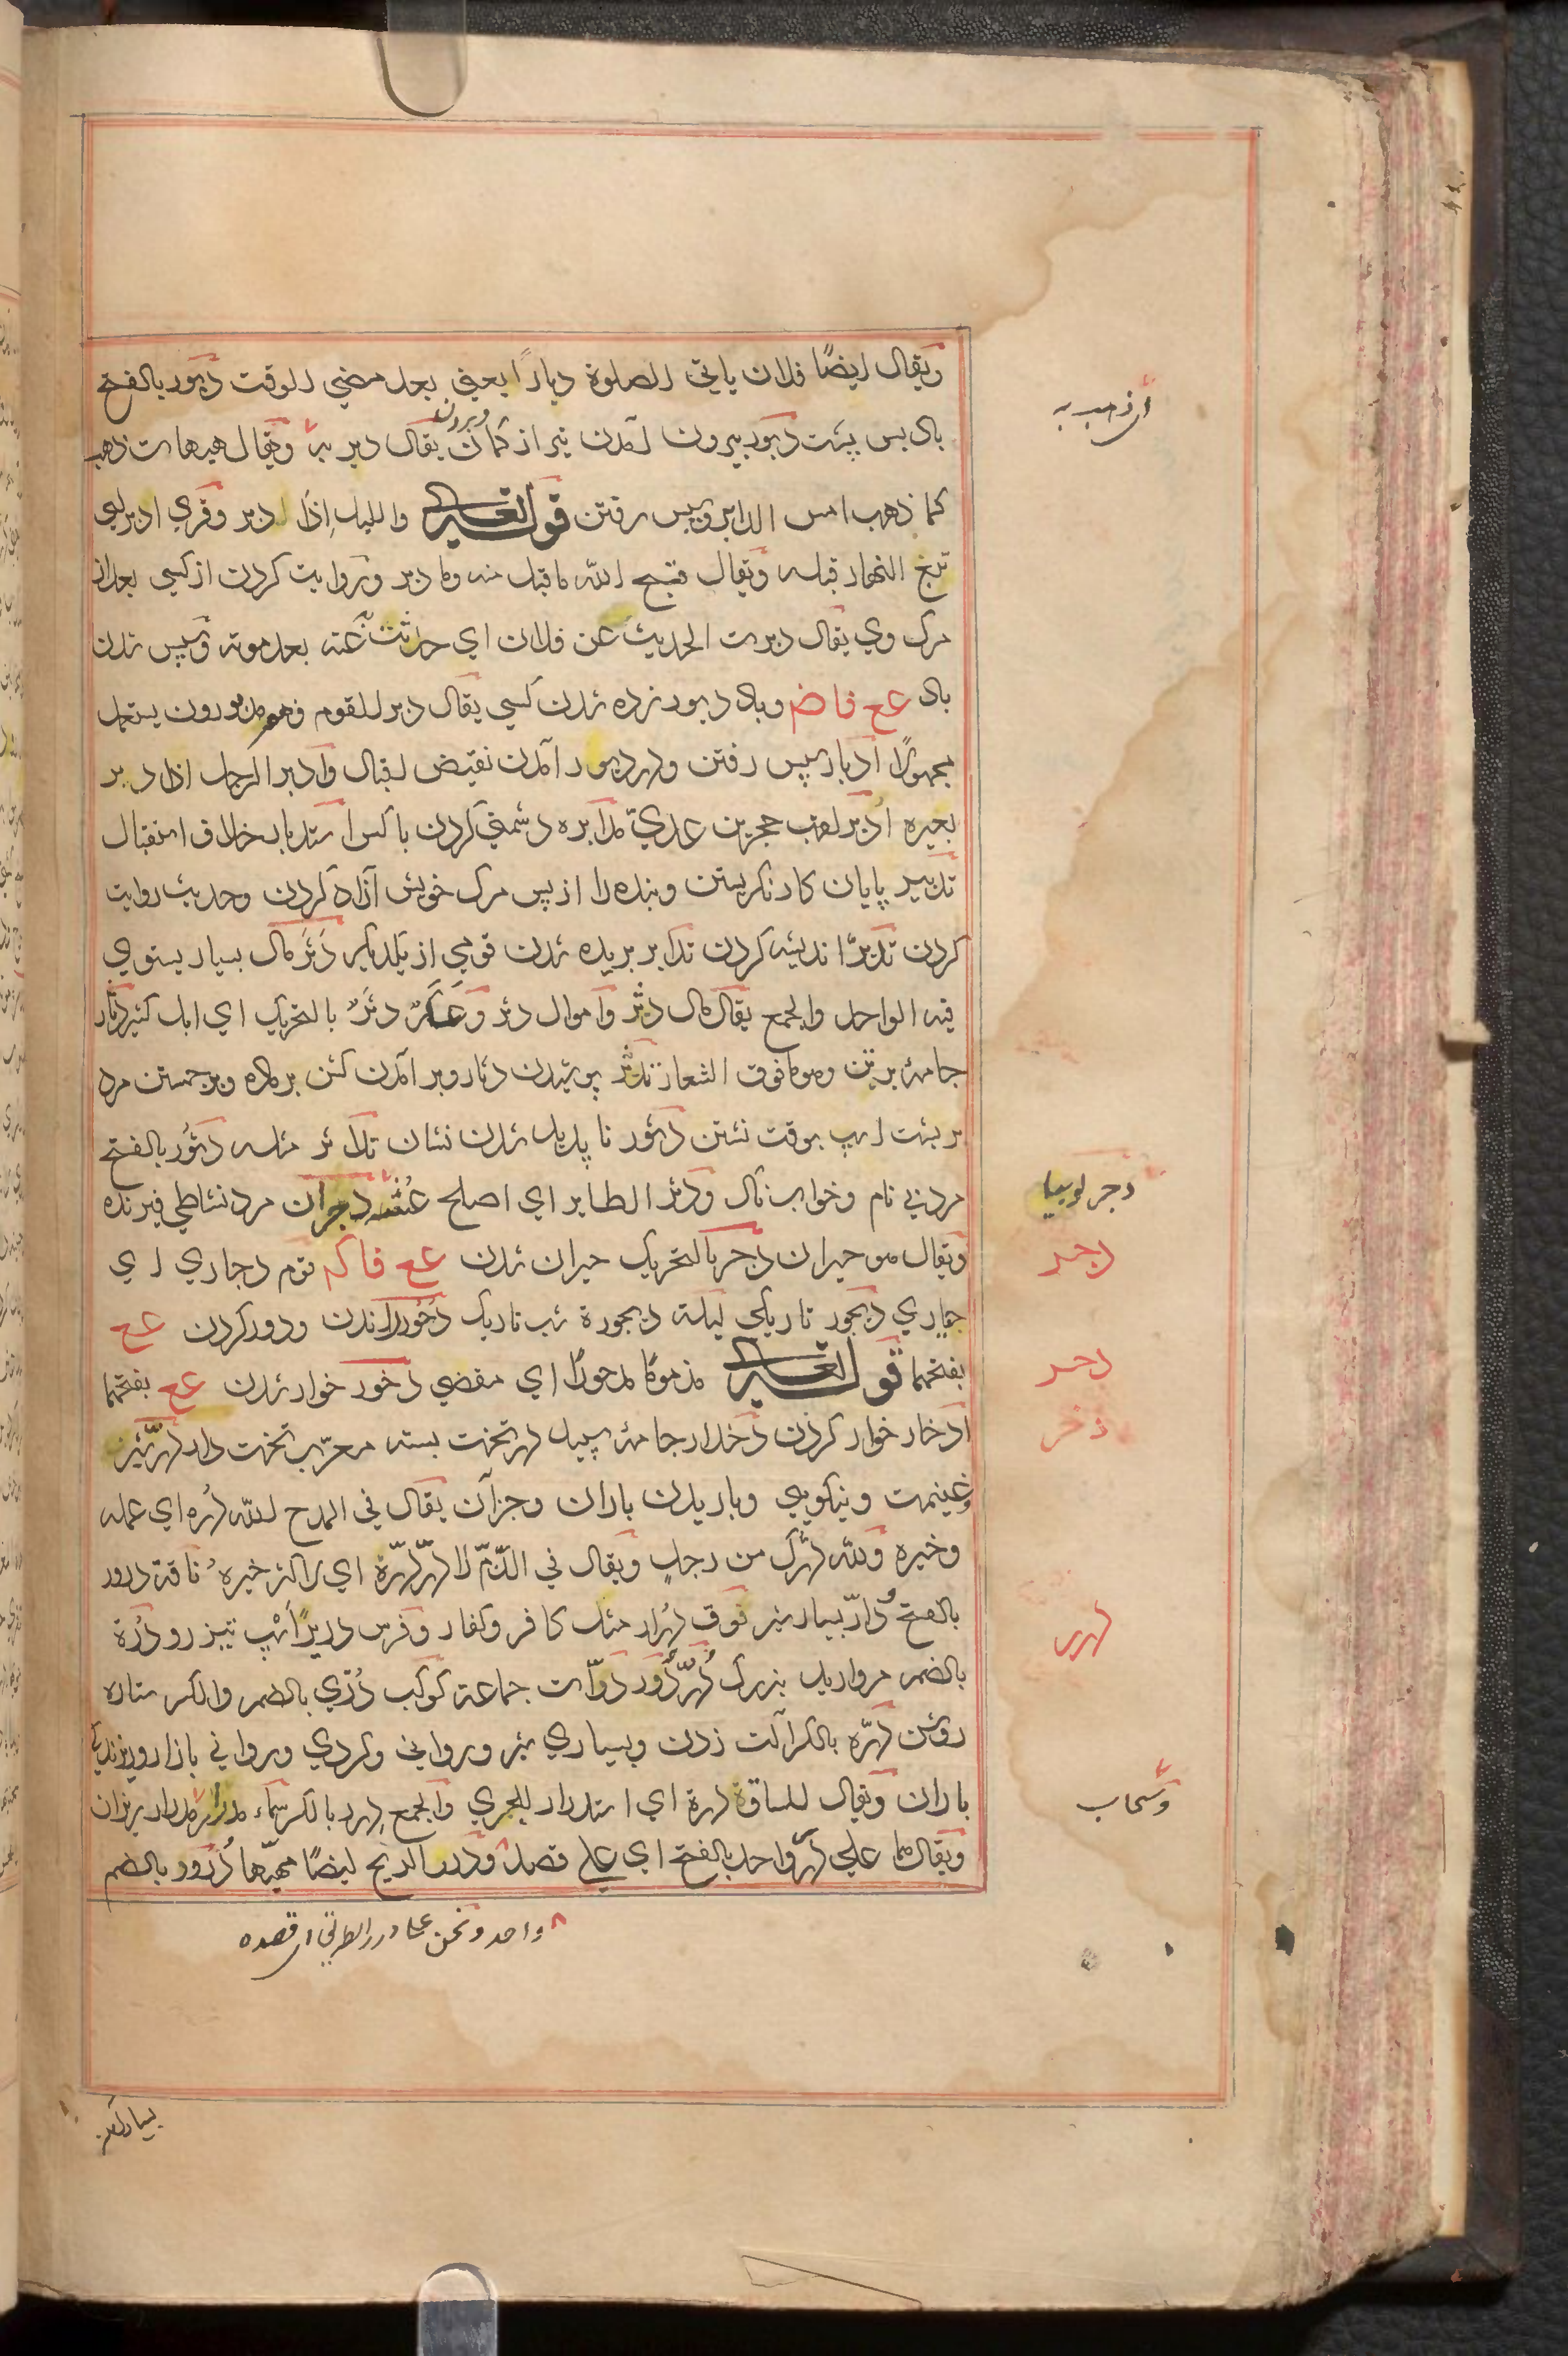 ويقال ايضًا فلان ياتي الصلوة دبارًا يعني بعد مضي الوقت دبور بالفتح
باد پس پشت دبور بيرون آمدن تير از كمان يقال دبر به ويقال هيهات ذهب
وبرون
اي ذهب به
كما ذهب امس الدابر وپس رفتن قوله تعالى والليل اِذا ادبر وقري ادبر اي
تبع النهار قبله ويقال قبح الله ما قبل منه وما دبر وروايت كردن از كسي بعد از
مرك وي يقال دبرت الحديث عن فلان اي حدثت عنه بعد موته وپس شدن
باد عع فاض وباد دبور زده شدن كسي يقال دبر للقوم فهم مدبورون يستعمل
مجهولًا ادبار سپس رفتن ودر دبور آمدن نقيض اقبال وادبر الرجل اذا دبر
بعيره اُدبر لقب حجر بن عدي مدابره دشمني كردن با كس استدبار خلاف استقبال
تدبير پايان كار نكريستن وبنده را از پس مرك خويش آزاد كردن وحديث روايت
كردن تدبرّ انديشه كردن تدابر بريده شدن قومي از يكديكر دَثر مال بسيار يستوي
فيه الواحد والجمع يقال مال دثر واموال دثر وعَكَرٌ دثَرٌ بالتحريك اي ابل كثير دثار
جامهٔ برتن وهو ما فوق الشعار تدثر پوشيدن دثار وبر آمدن كشن بر ماده وبرجستن مرد
بر پشت اسپ بوقت نشستن دثور ناپديد شدن نشان تداثر مثله دثور بالفتح
مرد بي نام وخواب ناك ودثر الطاير اي اصلح عُشه دجران مرد نشاطي فيرنده
دجر لوبيا
ويقال هو حيران دجر بالتحريك حيران شدن عع فاكم قوم دجاري اي
دجر
حياري ديجور تاريكي ليلة ديجورة شب تاريك دُحور راندن ودور كردن عع
بفتحهما قوله تعالى مذمومًا مدحورًا اي مقصي دخور خوار شدن عع بفتحهما
دحر
ادخار خوار كردن دخدار جامهٔ سپيد در تخت بسته معرّب تخت دار درّ شير
دخر
وغنيمت ونيكويي وباريدن باران وجز آن يقال في المدح لله درّه اي عمله
وخيره ولله درّك من رجلٍ ويقال في الذّمّ لا درّ درّه اي لا كثر خيره ناقة درور
بالفتح ودارّ بسيار شير نوق دُرار مثل كافر وكفار وفرس دريرٌ اسپ تيز رو دُرّة
درر
بالضم مرواريد بزرك دُرّ دُرر درّات جماعة كوكب دُرّي بالضم والكسر ستاره
روشن درّه بالكسر آلت زدن وبسياري شير ورواني وكردي ورواني بازار وريزندكي
باران ويقال للساق درة اي استدرار للجري والجمع درر بالكسر سماء مدرار مدرار ريزان
وسحاب
ويقال هما علي درر واحد بالفتح اي علي قصد ودرر الريح ايضًا مهبّها دُرور بالضم
واحد ونحن علے درر الطريق اي قصده